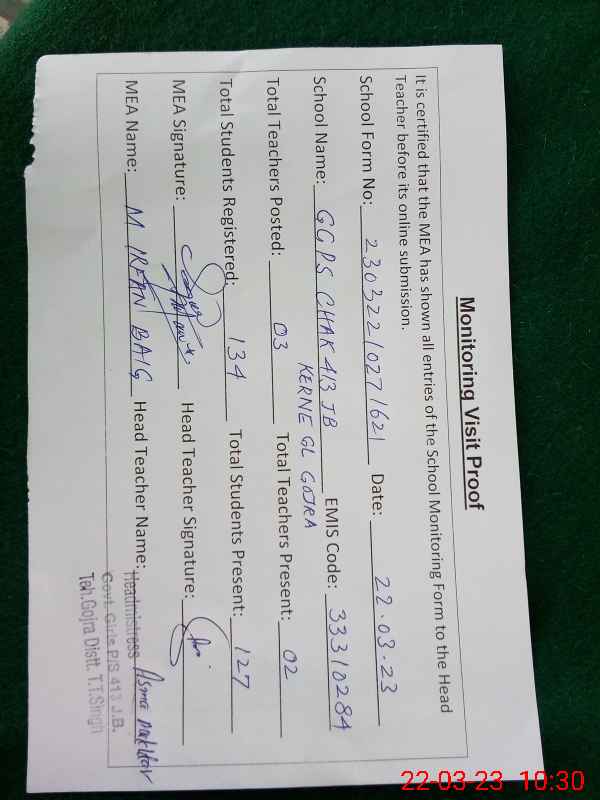 Monitoring Visit Proof
It is certified that the MEA has shown all entries of the School Monitoring Form to the Head
Teacher before its online submission.
School Form No: 2303221027162 1 Date: 22.03.23
School Name: GGPS CHAK 413 JB EMIS Code: 33310284
KERNE GL GOJRA
Total Teachers Posted: 03 Total Teachers Present: 02
Total Students Registered: 134 Total Students Present: 127
MEA Signature: Head Teacher Signature:
MEA Name: M IRFAN BAIG Head Teacher Name: Asma
Headmistress
Govt. Girls P/S 413 J.B.
Teh.Gojra Distt. T.T.Singh
22-03-23 10:30